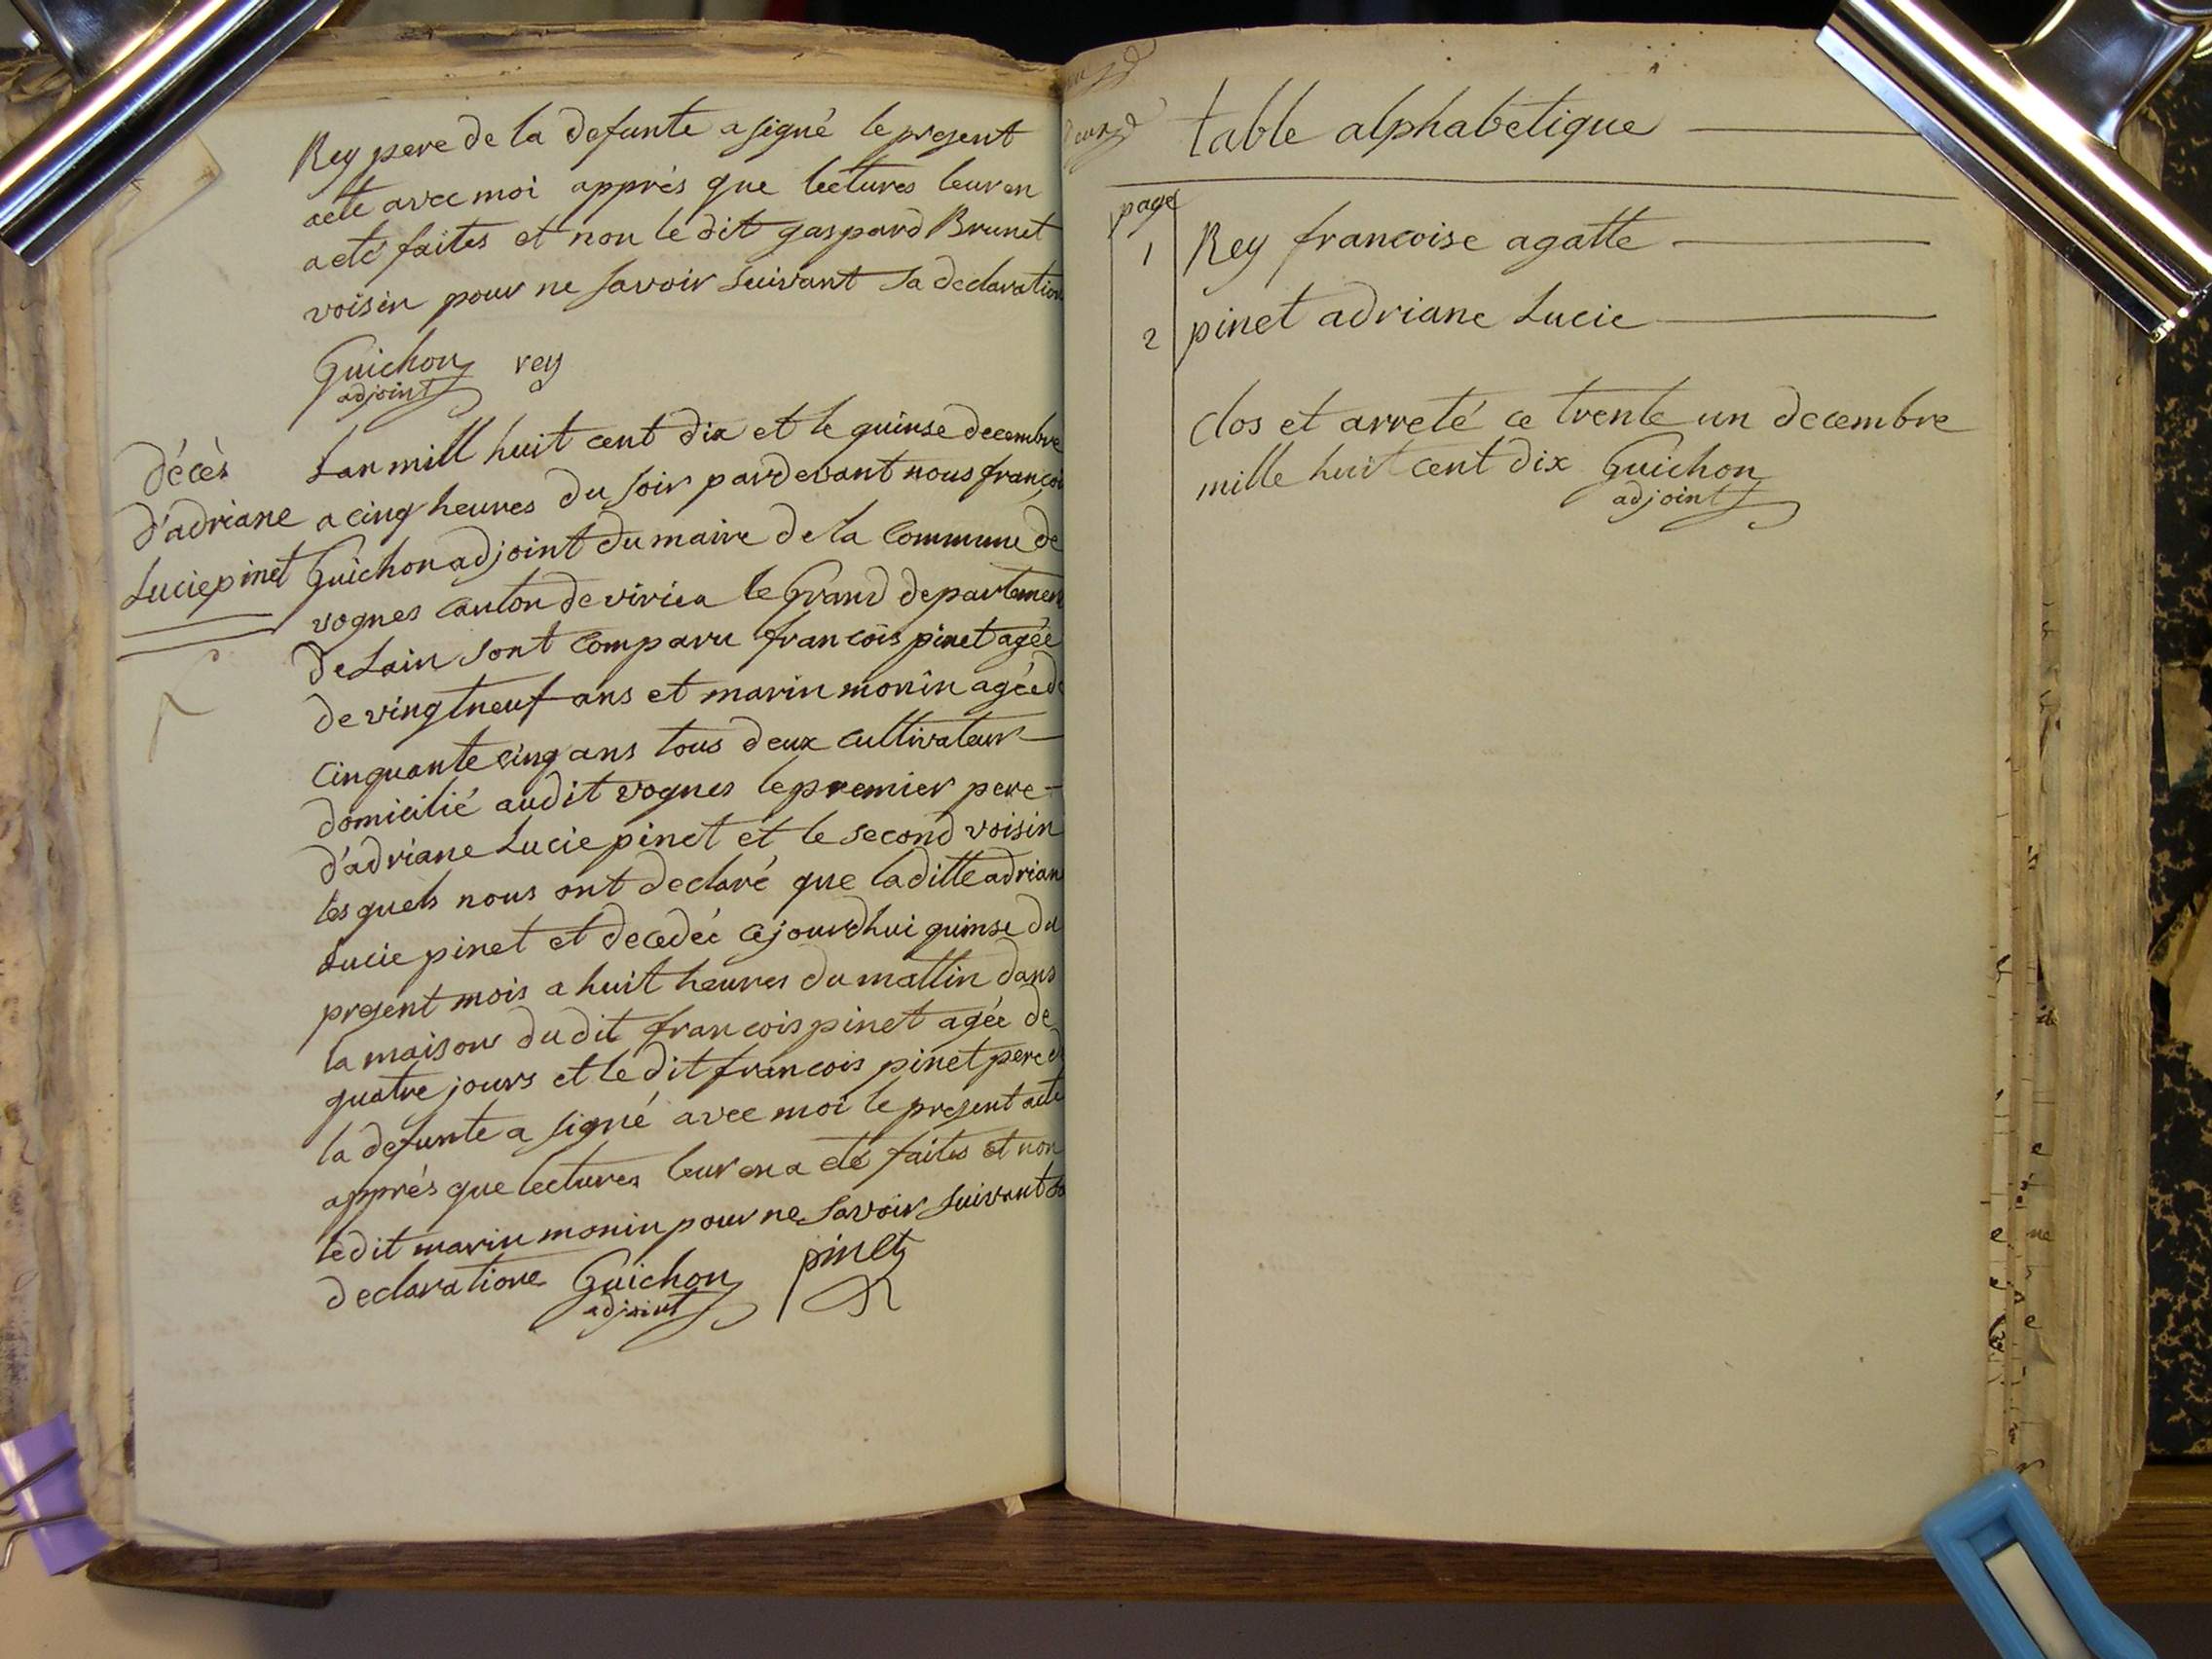 Rey pere de la defunte a signé le present
acte avec moi apprés que lectures leur en
a eté faites et non le dit gaspard Brunet
voisin pour ne savoir suivant sa declaration
Guichon rey
adjoint
décès
d'adriane
Lucie pinet
Lan mill huit cent dix et le quinse decembre
a cinq heures du soir pardevant nous françoi
Guichon adjoint du maire de la Commune de
vognes canton de viriea le Grand departemen
de Lain sont comparu francois pinet agée
de vingt neuf ans et marin monin agée de
cinquante cinq ans tous deux cultivateur
domicilié audit vognes le premier pere
d'adriane Lucie pinet et le second voisin
les quels nous ont declaré que laditte adrian
Lucie pinet et decedée cejourdhui quinse du
present mois a huit heures du mattin dans
la maison du dit francois pinet agée de
quatre jours et le dit francois pinet pere de
la defunte a signé avec moi le present acte
apprés que lectures leur en a eté faites et non
le dit marin monin pour ne savoir suivant sa
declaratione Guichon pinet
adjoint
table alphabetique
page
1 Rey francoise agatte
2 pinet adriane Lucie
Clos et arreté ce trente un decembre
mille huit cent dix Guichon
adjoint